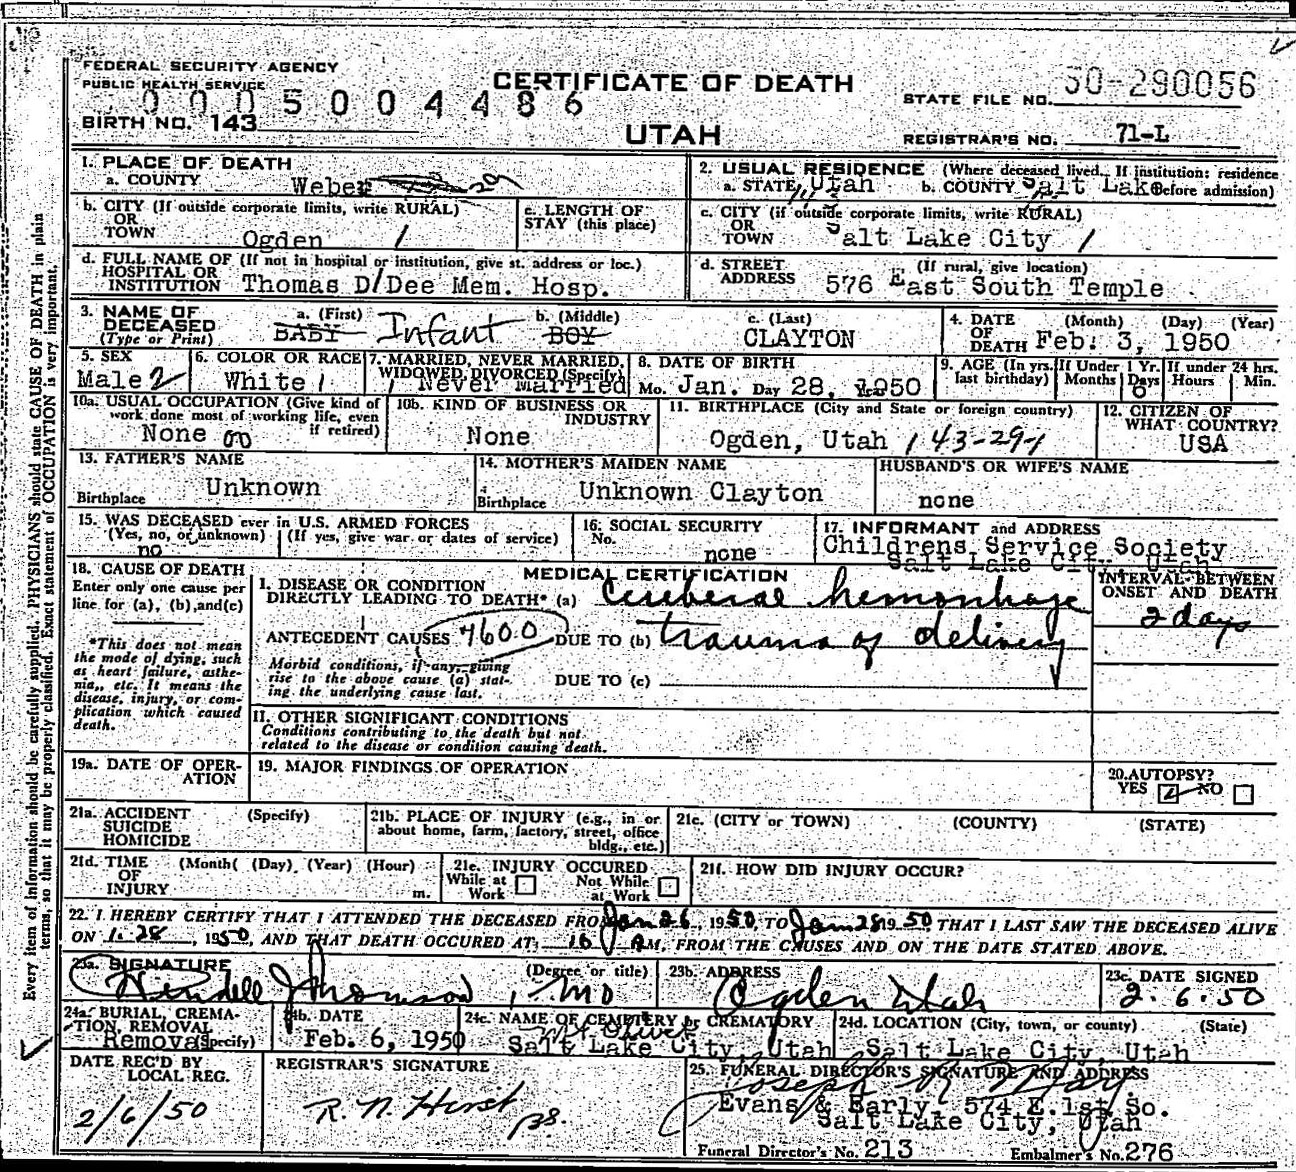 FEDERAL SECURITY AGENCY
PUBLIC HEALTH SERVICE
CERTIFICATE OF DEATH
0005004486
BIRTH NO. 143
UTAH
STATE FILE NO. 50-290056
REGISTRAR'S NO. 71-L
1. PLACE OF DEATH
a. COUNTY Weber 29
2. USUAL RESIDENCE (Where deceased lived. If institution: residence before admission)
a. STATE Utah b. COUNTY Salt Lake
b. CITY (If outside corporate limits, write RURAL) OR TOWN Ogden 1
c. LENGTH OF STAY (this place)
c. CITY (if outside corporate limits, write RURAL) OR TOWN Salt Lake City 1
d. FULL NAME OF (If not in hospital or institution, give st. address or loc.) HOSPITAL OR INSTITUTION Thomas D/Dee Mem. Hosp.
d. STREET ADDRESS (If rural, give location) 576 East South Temple
3. NAME OF DECEASED (Type or Print)
a. (First) BABY Infant b. (Middle) BOY c. (Last) CLAYTON
4. DATE OF DEATH (Month) (Day) (Year) Feb. 3, 1950
5. SEX Male 2
6. COLOR OR RACE White 1
7. MARRIED, NEVER MARRIED, WIDOWED, DIVORCED (Specify) 1 Never Married
8. DATE OF BIRTH Mo. Jan. Day 28, 1950
9. AGE (In yrs. last birthday) If Under 1 Yr. Months Days 6 If under 24 hrs. Hours Min.
10a. USUAL OCCUPATION (Give kind of work done most of working life, even if retired) None 00
10b. KIND OF BUSINESS OR INDUSTRY None
11. BIRTHPLACE (City and State or foreign country) Ogden, Utah 1 43-29-1
12. CITIZEN OF WHAT COUNTRY? USA
13. FATHER'S NAME Unknown
Birthplace
14. MOTHER'S MAIDEN NAME Unknown Clayton
Birthplace
HUSBAND'S OR WIFE'S NAME none
15. WAS DECEASED ever in U.S. ARMED FORCES
(Yes, no, or unknown) (If yes, give war or dates of service)
no
16. SOCIAL SECURITY No. none
17. INFORMANT and ADDRESS
Childrens Service Society
Salt Lake City, Utah
18. CAUSE OF DEATH
Enter only one cause per line for (a), (b), and (c)
*This does not mean the mode of dying, such as heart failure, asthenia, etc. It means the disease, injury, or complication which caused death.
MEDICAL CERTIFICATION
I. DISEASE OR CONDITION DIRECTLY LEADING TO DEATH* (a) Cerebral hemorrhage
INTERVAL BETWEEN ONSET AND DEATH
2 days
ANTECEDENT CAUSES 7600 DUE TO (b) trauma of delivery
Morbid conditions, if any, giving rise to the above cause (a) stating the underlying cause last.
DUE TO (c)
II. OTHER SIGNIFICANT CONDITIONS
Conditions contributing to the death but not related to the disease or condition causing death.
19a. DATE OF OPERATION
19. MAJOR FINDINGS OF OPERATION
20. AUTOPSY?
YES 2 NO
21a. ACCIDENT SUICIDE HOMICIDE (Specify)
21b. PLACE OF INJURY (e.g., in or about home, farm, factory, street, office bldg., etc.)
21c. (CITY OR TOWN) (COUNTY) (STATE)
21d. TIME OF INJURY (Month( (Day) (Year) (Hour) m.
21e. INJURY OCCURED
While at Work Not While at Work
21f. HOW DID INJURY OCCUR?
22. I HEREBY CERTIFY THAT I ATTENDED THE DECEASED FROM Jan 26, 1950, TO Jan 28 1950 THAT I LAST SAW THE DECEASED ALIVE
ON 1-28, 1950, AND THAT DEATH OCCURED AT 10 AM, FROM THE CAUSES AND ON THE DATE STATED ABOVE.
23a. SIGNATURE (Degree or title) Wendell J Thomson, MD
23b. ADDRESS Ogden Utah
23c. DATE SIGNED 2-6-50
24a. BURIAL, CREMATION, REMOVAL (Specify) Removal
24b. DATE Feb. 6, 1950
24c. NAME OF CEMETERY or CREMATORY Mt Olivet
Salt Lake City, Utah
24d. LOCATION (City, town, or county) (State)
Salt Lake City, Utah
DATE REC'D BY LOCAL REG. 2/6/50
REGISTRAR'S SIGNATURE R. N. Hirst
25. FUNERAL DIRECTOR'S SIGNATURE AND ADDRESS
Joseph
Evans & Early, 574 E. 1st So.
Salt Lake City, Utah
Funeral Director's No. 213 Embalmer's No. 276
Every item of information should be carefully supplied. PHYSICIANS should state CAUSE OF DEATH in plain
terms, so that it may be properly classified. Exact statement of OCCUPATION is very important.